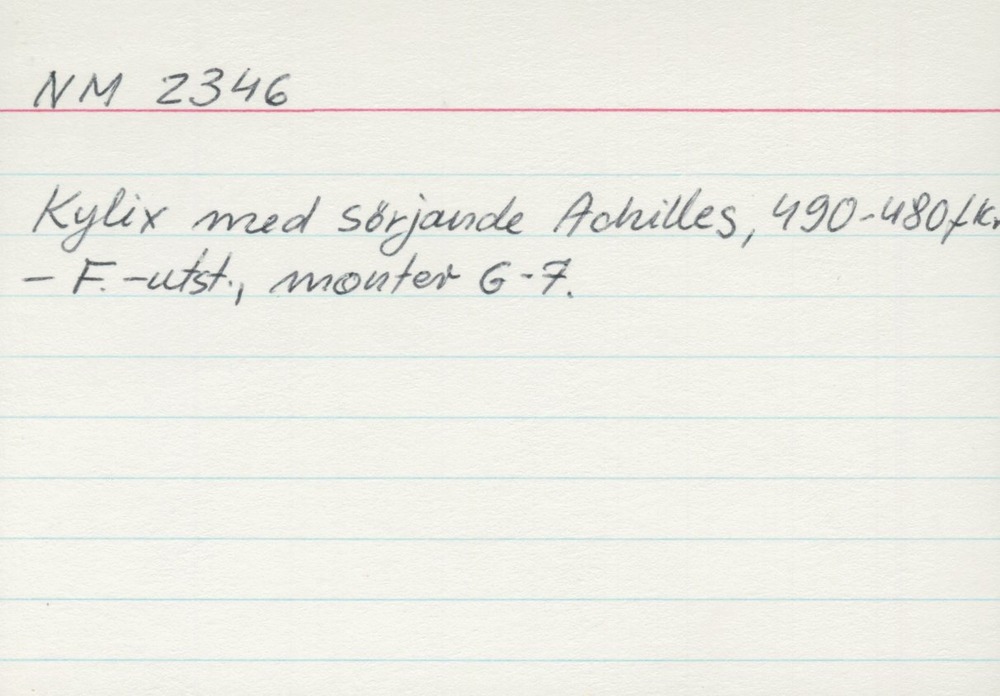 NM 2346
Kylix med sörjande Achilles, 490-480 f.Kr.
- F.-utst., monter 6-7.